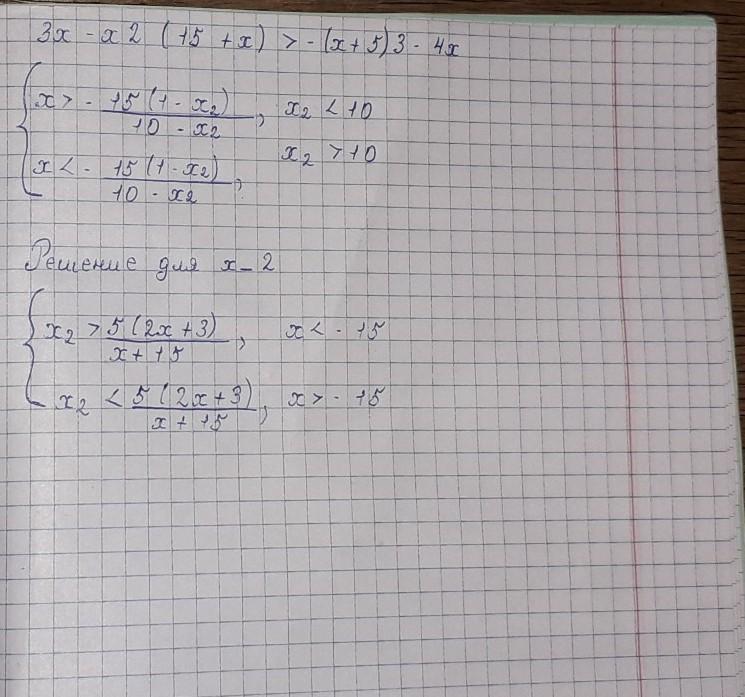 3x - x2 (15 + x) > - (x + 5)3 - 4x
x > - 15(1 - x₂) / 10 - x₂, x₂ < 10
x < - 15(1 - x₂) / 10 - x₂, x₂ > 10
Решение для x_2
x₂ > 5(2x + 3) / x + 15, x < - 15
x₂ < 5(2x + 3) / x + 15, x > - 15